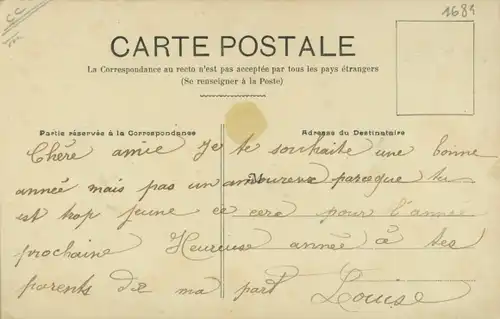 CC
1684
CARTE POSTALE
La Correspondance au recto n'est pas acceptée par tous les pays étrangers
(Se renseigner à la Poste)
Partie réservée à la Correspondance
Adresse du Destinataire
Chère amie Je te souhaite une bonne
année mais pas un amoureux parceque tu
est trop jeune ce cera pour l'année
prochaine Heureuse année à tes
parents de ma part Louise